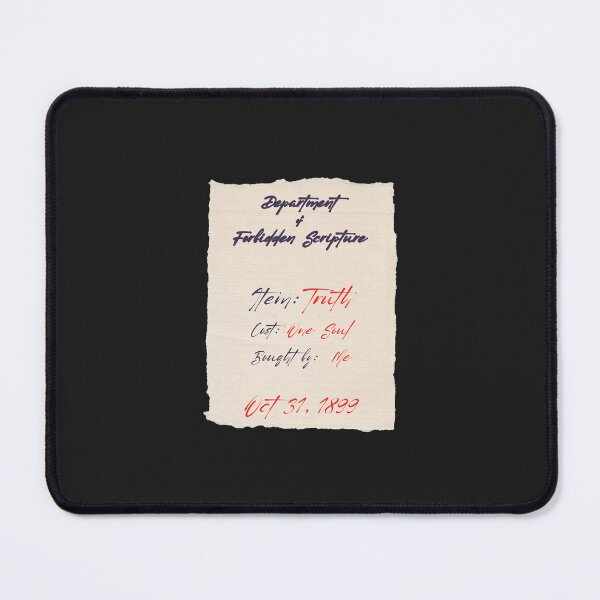 Department
of
Forbidden Scripture
Item: Truth
Cost: One Soul
Bought by: Me
Oct 31, 1899